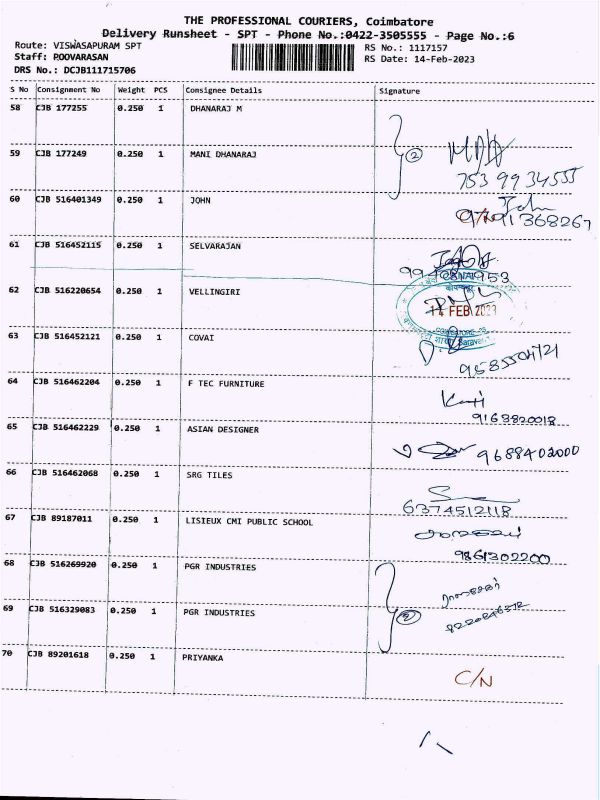 THE PROFESSIONAL COURIERS, Coimbatore
Delivery Runsheet - SPT - Phone No.:0422-3505555 - Page No.:6
Route: VISWASAPURAM SPT RS No.: 1117157
Staff: POOVARASAN RS Date: 14-Feb-2023
DRS No.: DCJB111715706
S No Consignment No Weight PCS Consignee Details Signature
58 CJB 177255 0.250 1 DHANARAJ M
2
59 CJB 177249 0.250 1 MANI DHANARAJ
753 99 34555
60 CJB 516401349 0.250 1 JOHN
John
9791368267
61 CJB 516452115 0.250 1 SELVARAJAN
62 CJB 516220654 0.250 1 VELLINGIRI
14 FEB 2023
63 CJB 516452121 0.250 1 COVAI
64 CJB 516462204 0.250 1 F TEC FURNITURE
9163820018
65 CJB 516462229 0.250 1 ASIAN DESIGNER
9688402000
66 CJB 516462068 0.250 1 SRG TILES
6374512118
67 CJB 89187011 0.250 1 LISIEUX CMI PUBLIC SCHOOL
9861302200
68 CJB 516269920 0.250 1 PGR INDUSTRIES
2
69 CJB 516329083 0.250 1 PGR INDUSTRIES
70 CJB 89201618 0.250 1 PRIYANKA
C/N